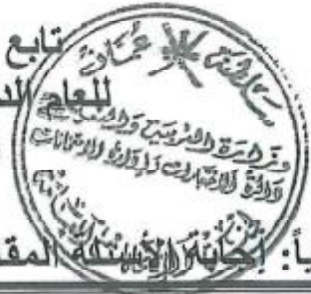 تابع
للعام الد
سلطنة عُمان
وزارة التربية والتعليم
دائرة الاختبارات وإدارة الامتحانات
ياً: إجابة الأسئلة المقا